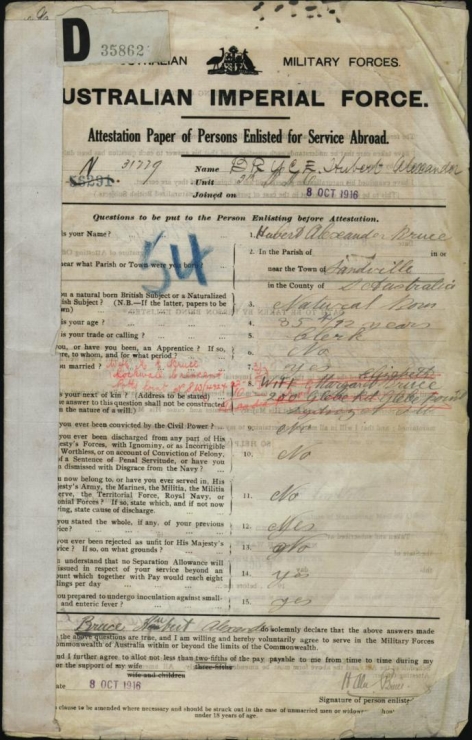 D 35862
AUSTRALIAN MILITARY FORCES.
USTRALIAN IMPERIAL FORCE.
Attestation Paper of Persons Enlisted for Service Abroad.
N 31779
Name BRUCE Hubert Alexander
Unit
Joined on 8 OCT 1916
Questions to be put to the Person Enlisting before Attestation.
is your Name? 1. Hubert Alexander Bruce
54
2. In the Parish of in or
near what Parish or Town were you born? near the Town of
in the County of S. Australia
you a natural born British Subject or a Naturalized
ish Subject? (N.B.—If the latter, papers to be 3. Natural Born
wn)
is your age? 4. 35 years
is your trade or calling? 5. Clerk
you, or have you been, an Apprentice? If so,
re, to whom, and for what period? 6. No
you married? 7. yes
is your next of kin? (Address to be stated) 8. Wife Margaret Bruce
e answer to this question shall not be construed
n the nature of a will.)
you ever been convicted by the Civil Power? 9. No
you ever been discharged from any part of His
jesty's Forces, with Ignominy, or as Incorrigible
Worthless, or on account of Conviction of Felony, 10. No
f a Sentence of Penal Servitude, or have you
n dismissed with Disgrace from the Navy?
you now belong to, or have you ever served in, His
esty's Army, the Marines, the Militia, the Militia
erve, the Territorial Force, Royal Navy, or 11. No
onial Forces? If so, state which, and if not now
ring, state cause of discharge.
you stated the whole, if any, of your previous
vice? 12. Yes
you ever been rejected as unfit for His Majesty's
vice? If so, on what grounds? 13. No
understand that no Separation Allowance will
issued in respect of your service beyond an
ount which together with Pay would reach eight 14. yes
lings per day
you prepared to undergo inoculation against small-
and enteric fever? 15. yes
Bruce Hubert Alexander do solemnly declare that the above answers made
the above questions are true, and I am willing and hereby voluntarily agree to serve in the Military Forces
ommonwealth of Australia within or beyond the limits of the Commonwealth.
nd I further agree to allot not less than two-fifths of the pay payable to me from time to time during my
three-fifths
or the support of my wife
wife and children
ate 8 OCT 1916
Signature of person enliste
clause to be amended where necessary and should be struck out in the case of unmarried men or widowe
under 18 years of age.